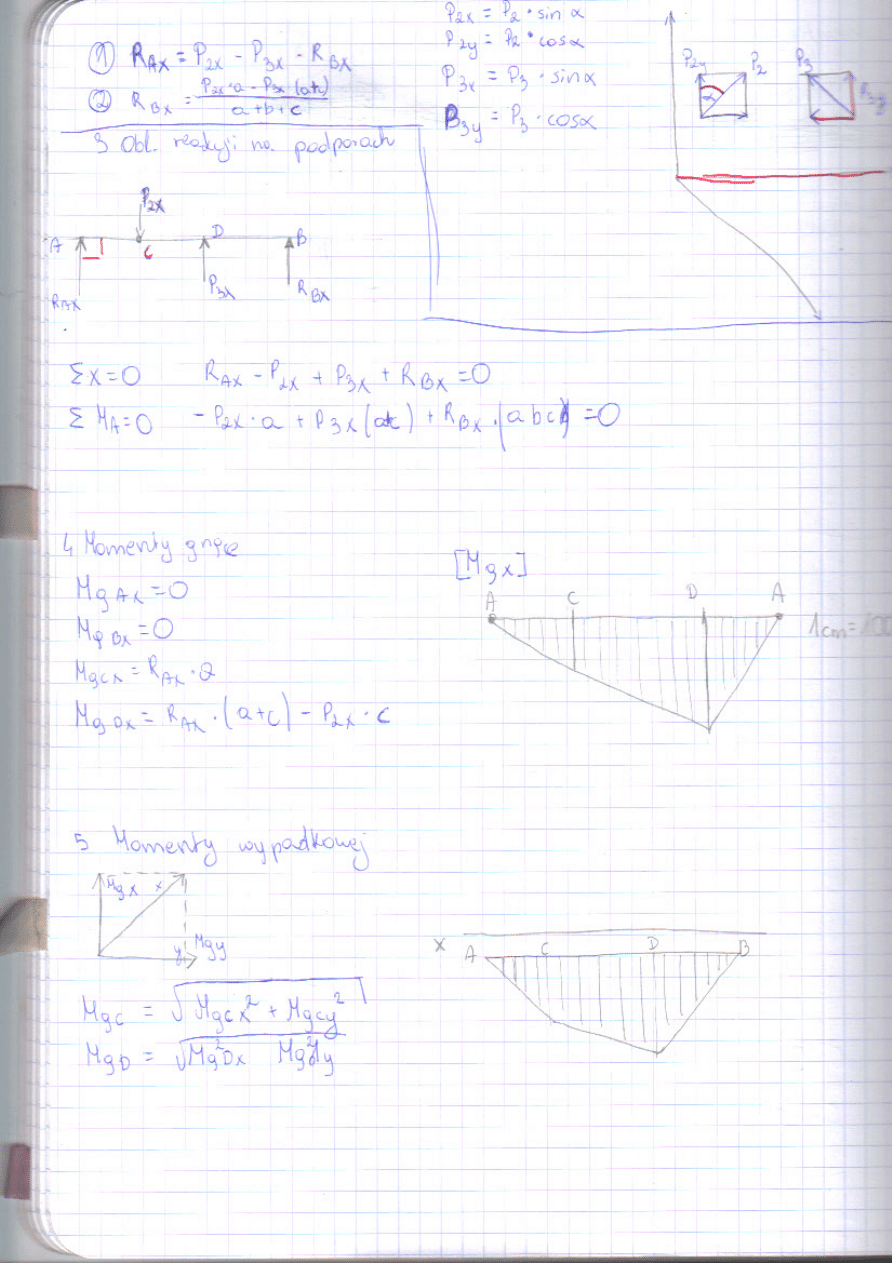 ① R_Ax = P_2x - P_3x - R_Bx
② R_Bx = (P_2x·a - P_3x (a+c)) / (a+b+c)
P_2x = P_2 · sin α
P_2y = P_2 · cosα
P_3x = P_3 · sinα
B_3y = P_3 · cosα
P_2y P_2 P_3
α
3 Obl. reakcji na podporach
P_2x
A C D B
R_Ax P_3x R_Bx
Σ X = 0 R_Ax - P_2x + P_3x + R_Bx = 0
Σ M_A = 0 - P_2x · a + P_3x (a+c) + R_Bx · (a b c) = 0
4 Momenty gnące
Mg_Ax = 0
Mg_Bx = 0
Mg_cx = R_Ax · a
Mg_Dx = R_Ax · (a+c) - P_2x · c
[Mgx]
A C D A
1cm = 100
5 Momenty wypadkowej
Mgx x
y Mgy
Mgc = √Mgcx² + Mgcy²
MgD = √Mg²Dx Mg²Dy
x A C D B